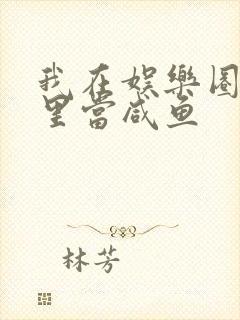 我在娱樂圈
里當咸鱼
林芳